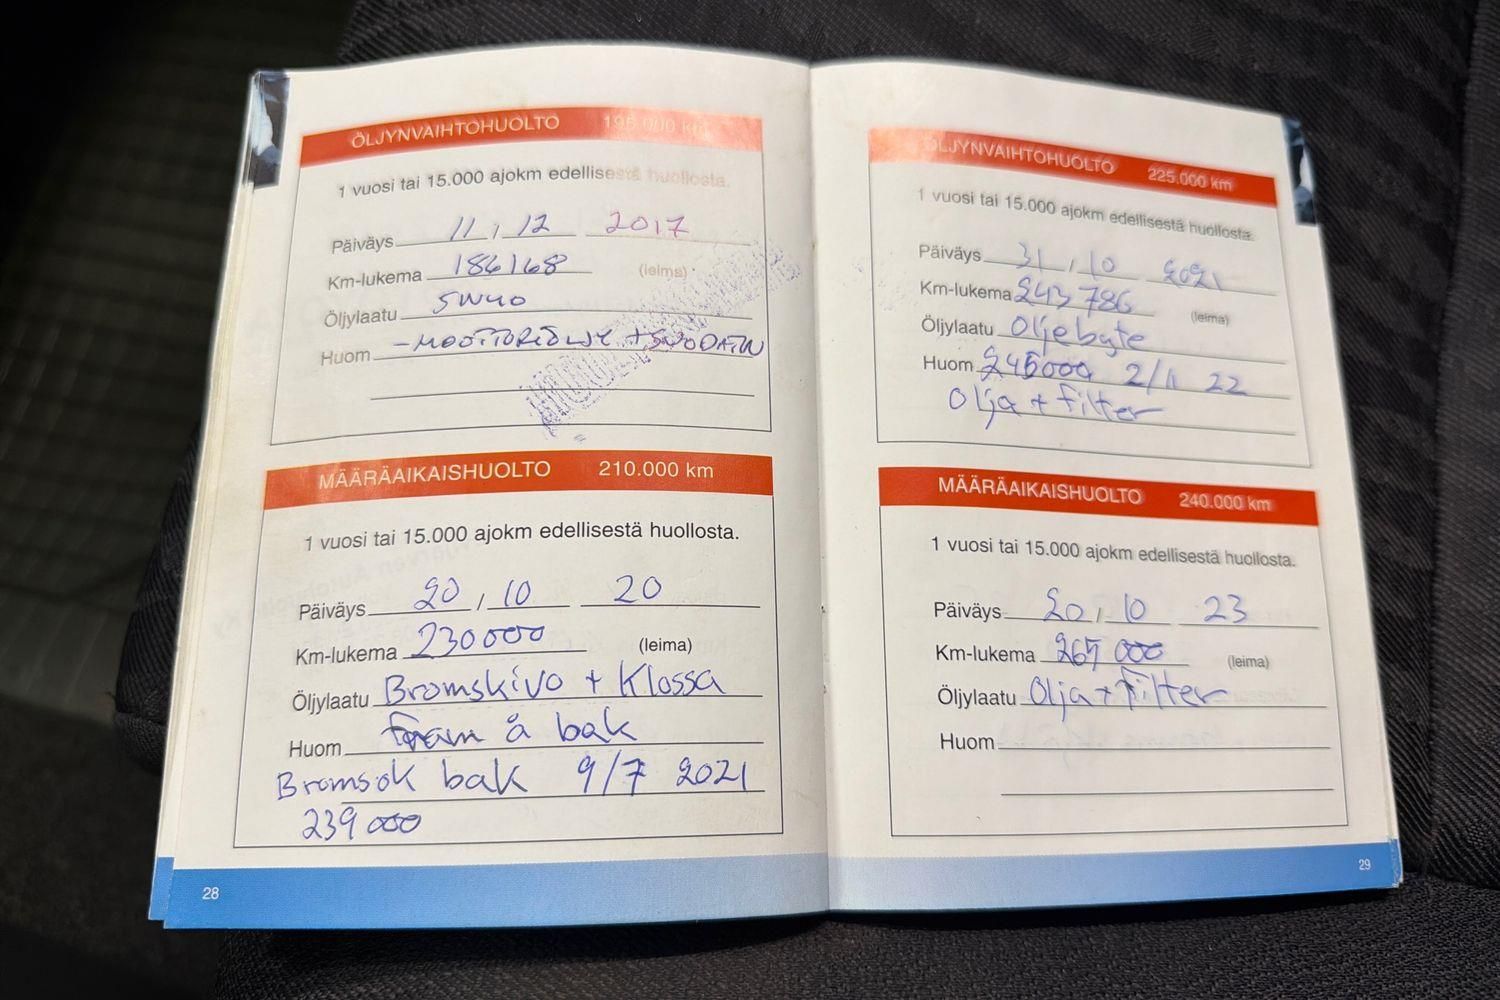 ÖLJYNVAIHTOHUOLTO 195.000 km
1 vuosi tai 15.000 ajokm edellisestä huollosta.
Päiväys 11, 12 2017
Km-lukema 186168 (leima)
Öljylaatu 5W40
Huom - MOOTTORIÖLJY + SUODATIN
MÄÄRÄAIKAISHUOLTO 210.000 km
1 vuosi tai 15.000 ajokm edellisestä huollosta.
Päiväys 20, 10 20
Km-lukema 230000 (leima)
Öljylaatu Bromskivo + Klossa
Huom fram å bak
Bromsok bak 9/7 2021
239000
28
ÖLJYNVAIHTOHUOLTO 225.000 km
1 vuosi tai 15.000 ajokm edellisestä huollosta.
Päiväys 31, 10 2021
Km-lukema 243786 (leima)
Öljylaatu Oljebyte
Huom 245000 2/11 22
Olja + filter
MÄÄRÄAIKAISHUOLTO 240.000 km
1 vuosi tai 15.000 ajokm edellisestä huollosta.
Päiväys 20, 10 23
Km-lukema 265000 (leima)
Öljylaatu Olja + Filter
Huom
29